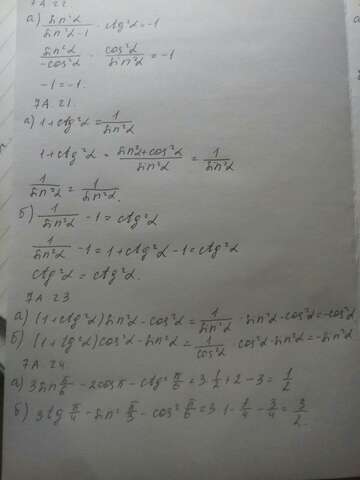 7A.22
a) sin²α / sin²α-1 · ctg²α=-1
sin²α / -cos²α · cos²α / sin²α = -1
-1=-1.
7A.21.
a) 1+ctg²α = 1 / sin²α
1+ctg²α = sin²α+cos²α / sin²α = 1 / sin²α
1 / sin²α = 1 / sin²α.
б) 1 / sin²α -1 = ctg²α
1 / sin²α -1 = 1+ctg²α-1 = ctg²α
ctg²α = ctg²α.
7A.23
a) (1+ctg²α)sin²α-cos²α = 1 / sin²α · sin²α-cos²α=-cos²α
б) (1+tg²α)cos²α-sin²α = 1 / cos²α · cos²α-sin²α=-sin²α
7A.24
a) 3sin π/6 - 2cosπ - ctg² π/6 = 3·1/2+2-3 = 1/2
б) 3tg π/4 - sin² π/3 - cos² π/6 = 3·1- 1/4 - 3/4 = 3/2.